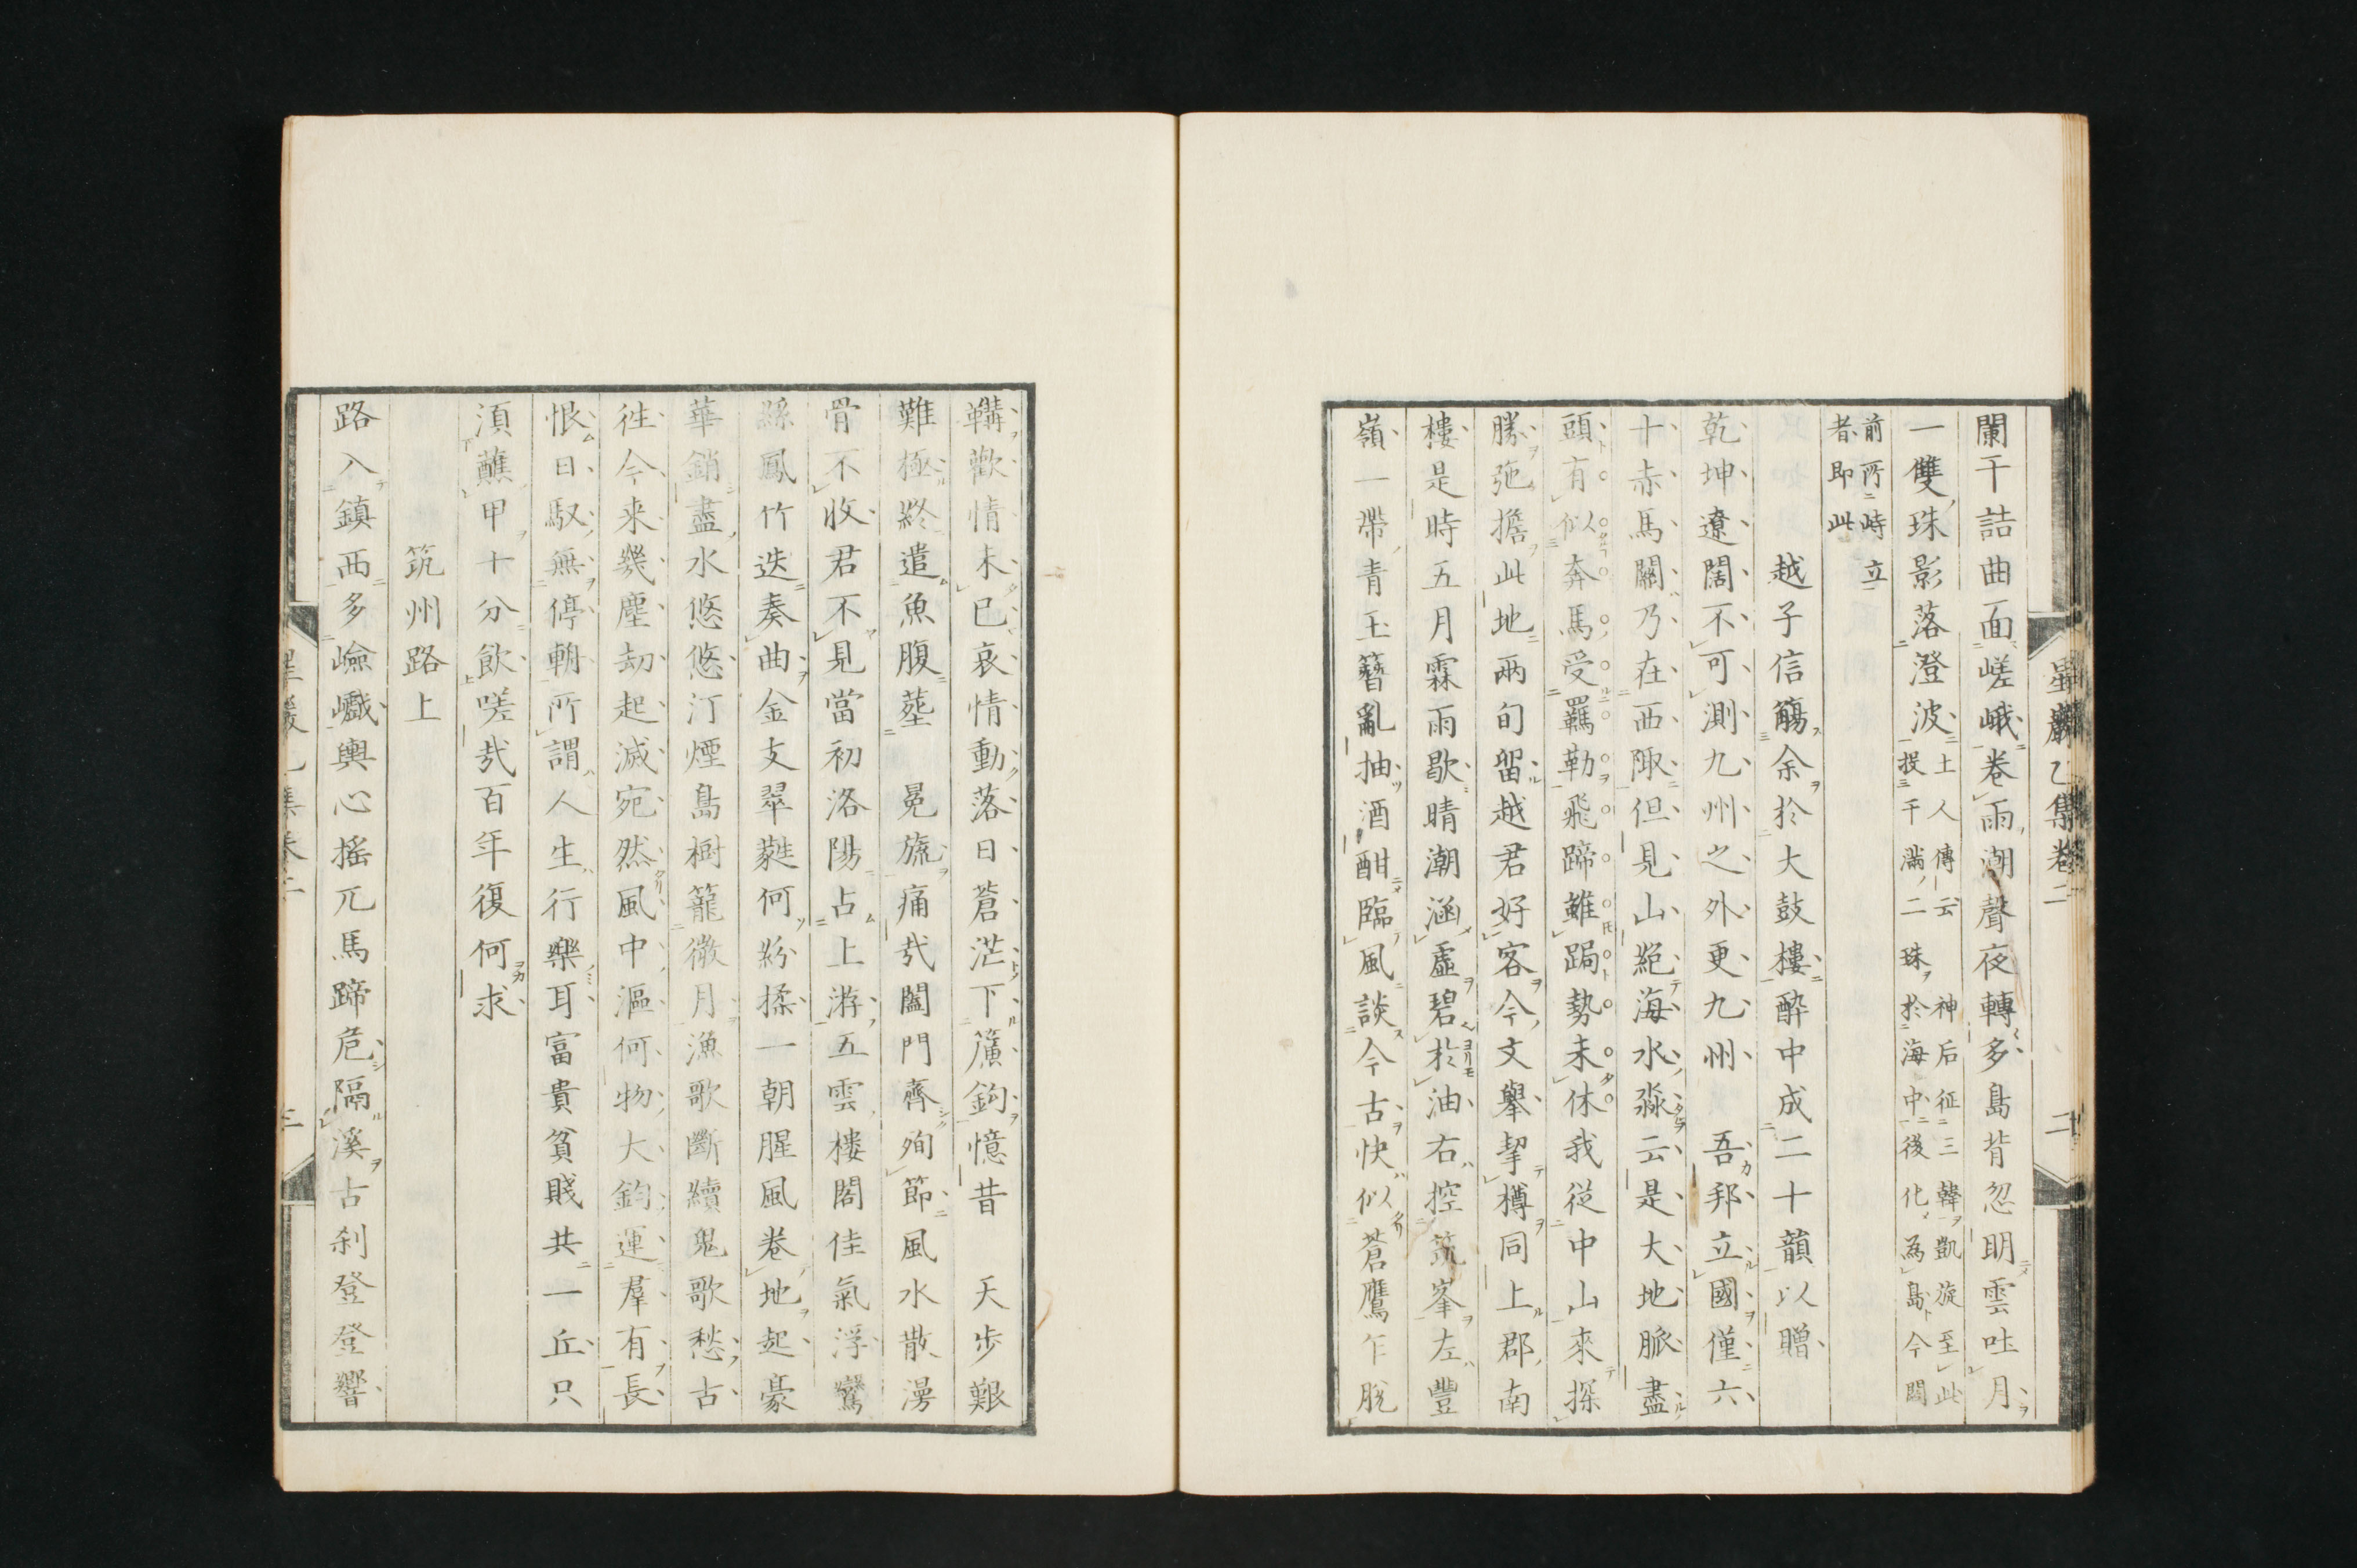 星巖乙集卷二
二
闌干詰曲面嵯峨卷雨潮聲夜轉多島背忽明雲吐月
一雙珠影落澄波土人傳云神后征三韓凱旋至此
投干滿二珠於海中後化為島今閟
前所時立
者即此
越子信觴余於大鼓樓醉中成二十韻以贈
乾坤遼闊不可測九州之外更九州 吾邦立國僅六
十赤馬關乃在西陬但見山絕海水淼云是大地脈盡
頭有似奔馬受羈勒飛蹄雖跼勢未休我從中山來探
勝弛擔此地兩旬留越君好客今文擧挈樽同上郡南
樓是時五月霖雨歇晴潮涵虛碧於油右控筑峯左豐
嶺一帶青玉簪亂抽酒酣臨風談今古快似蒼鷹乍脫
鞲歡情未已哀情動落日蒼茫下簾鉤憶昔 天步艱
難極終遣魚腹葬 冕旒痛哉闔門齊殉節風水散漫
骨不收君不見當初洛陽占上游五雲樓閣佳氣浮鸞
絲鳳竹迭奏曲金支翠蕤何紛揉一朝腥風卷地起豪
華銷盡水悠悠汀煙島樹籠微月漁歌斷續鬼歌愁古
徃今来幾塵劫起滅宛然風中漚何物大鈞運羣有長
恨日馭無停輈所謂人生行樂耳富貴貧賤共一丘只
須蘸甲十分飲嗟哉百年復何求
筑州路上
路入鎮西多嶮巇輿心搖兀馬蹄危隔溪古刹登登響
三